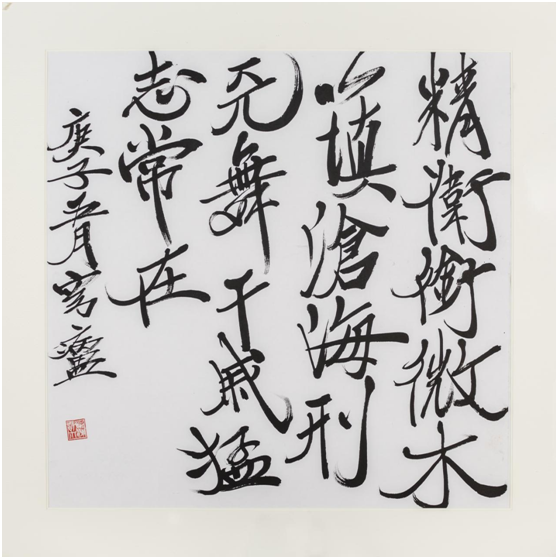 精衛銜微木
以填滄海刑
天舞干戚猛
志常在
庚子五月